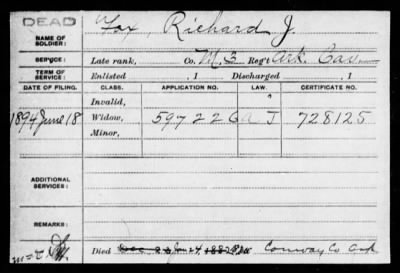 DEAD
NAME OF SOLDIER: Fox, Richard J.
SERVICE: Late rank, Co. M. 3 Reg't Ark. Cav.
TERM OF SERVICE: Enlisted , 1 Discharged , 1
DATE OF FILING. CLASS. APPLICATION NO. LAW. CERTIFICATE NO.
Invalid,
1894 June 18 Widow, 597226 J 728125
Minor,
ADDITIONAL SERVICES:
REMARKS:
Died Conway Co Ark